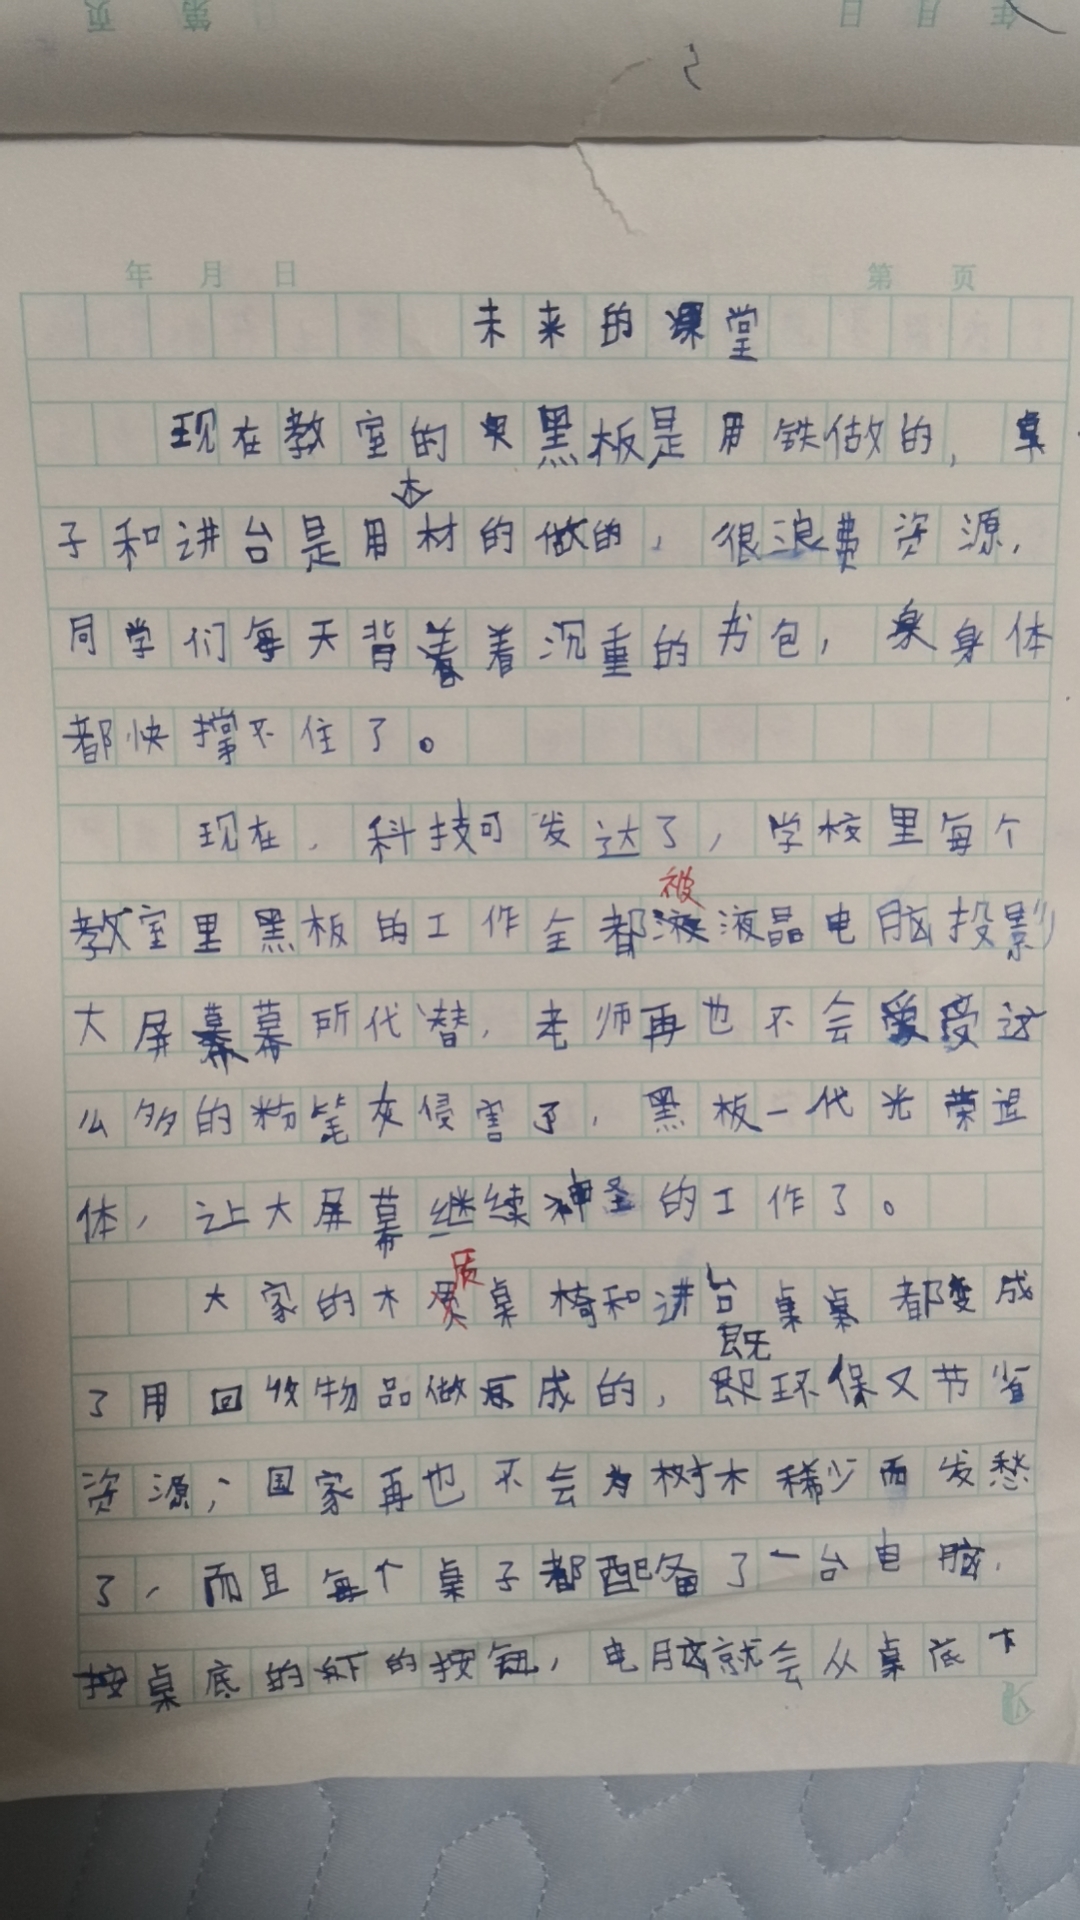 年 月 日
第 页
未来的课堂
现在教室的黑板是用铁做的，桌
子和讲台是用木材的做的，很浪费资源，
同学们每天背着沉重的书包，身体
都快撑不住了。
现在，科技可发达了，学校里每个
教室里黑板的工作全都被液晶电脑投影
大屏幕所代潜，老师再也不会受这
么多的粉笔灰侵害了，黑板一代光荣退
体，让大屏幕继续神圣的工作了。
大家的木质桌椅和讲台桌都变成
了用回收物品做成的，既环保又节省
资源，国家再也不会为树木稀少而发愁
了，而且每个桌子都配备了一台电脑，
按桌底的按钮，电脑就会从桌底下